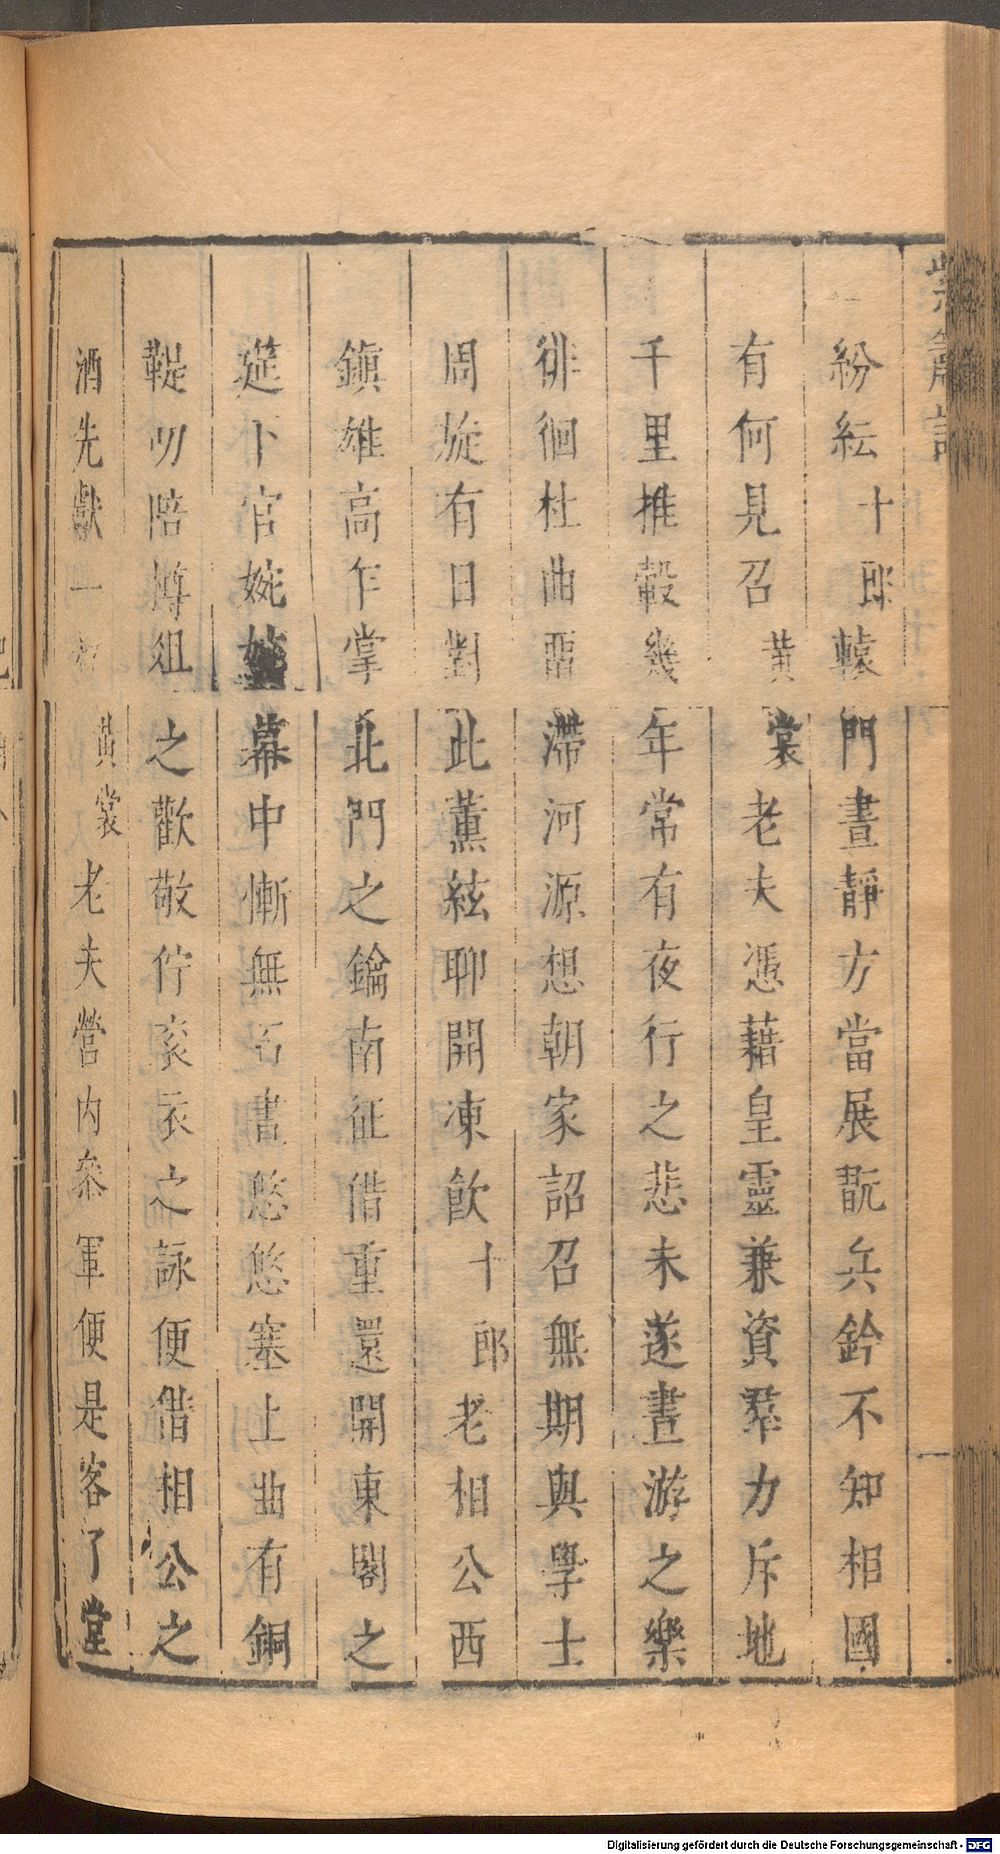 紫簫記
紛紜十郎轅門晝靜方當展翫兵鈐不知相國
有何見召黃裳老夫憑藉皇靈兼資羣力斥地
千里推轂幾年常有夜行之悲未遂晝游之樂
徘徊杜曲留滯河源想朝家詔召無期與學士
周旋有日對此薰絃聊開凍飲十郎老相公西
鎮雄高乍掌北門之鑰南征借重還開東閣之
筵卜官婉孌幕中慚無石書悠悠塞上曲有銅
鞮叨陪罇俎之歡敬佇袞衣之詠便借相公之
酒先獻一杯黃裳老夫營內叅軍便是客了堂
Digitalisierung gefördert durch die Deutsche Forschungsgemeinschaft - DFG